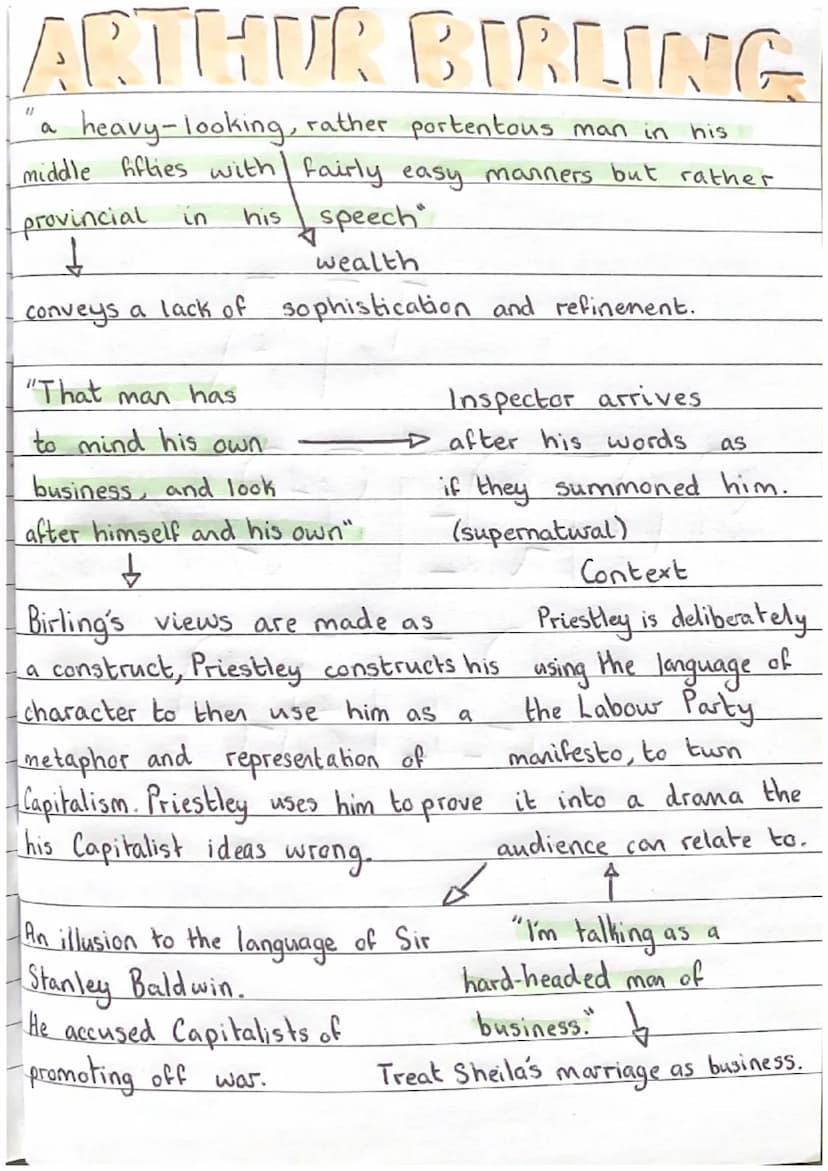 ARTHUR BIRLING
"a heavy-looking, rather portentous man in his
middle fifties with fairly easy manners but rather
provincial in his speech"
wealth
conveys a lack of sophistication and refinement.
"That man has
to mind his own
business, and look
after himself and his own"
Inspector arrives
after his words as
if they summoned him.
(supernatural)
Birling's views are made as
a construct, Priestley constructs his
character to then use him as a
metaphor and representation of
Capitalism. Priestley uses him to prove
his Capitalist ideas wrong.
Context
Priestley is deliberately
using the language of
the Labour Party
manifesto, to turn
it into a drama the
audience can relate to.
An illusion to the language of Sir
Stanley Baldwin.
He accused Capitalists of
promoting off war.
"I'm talking as a
hard-headed man of
business."
Treat Sheila's marriage as business.